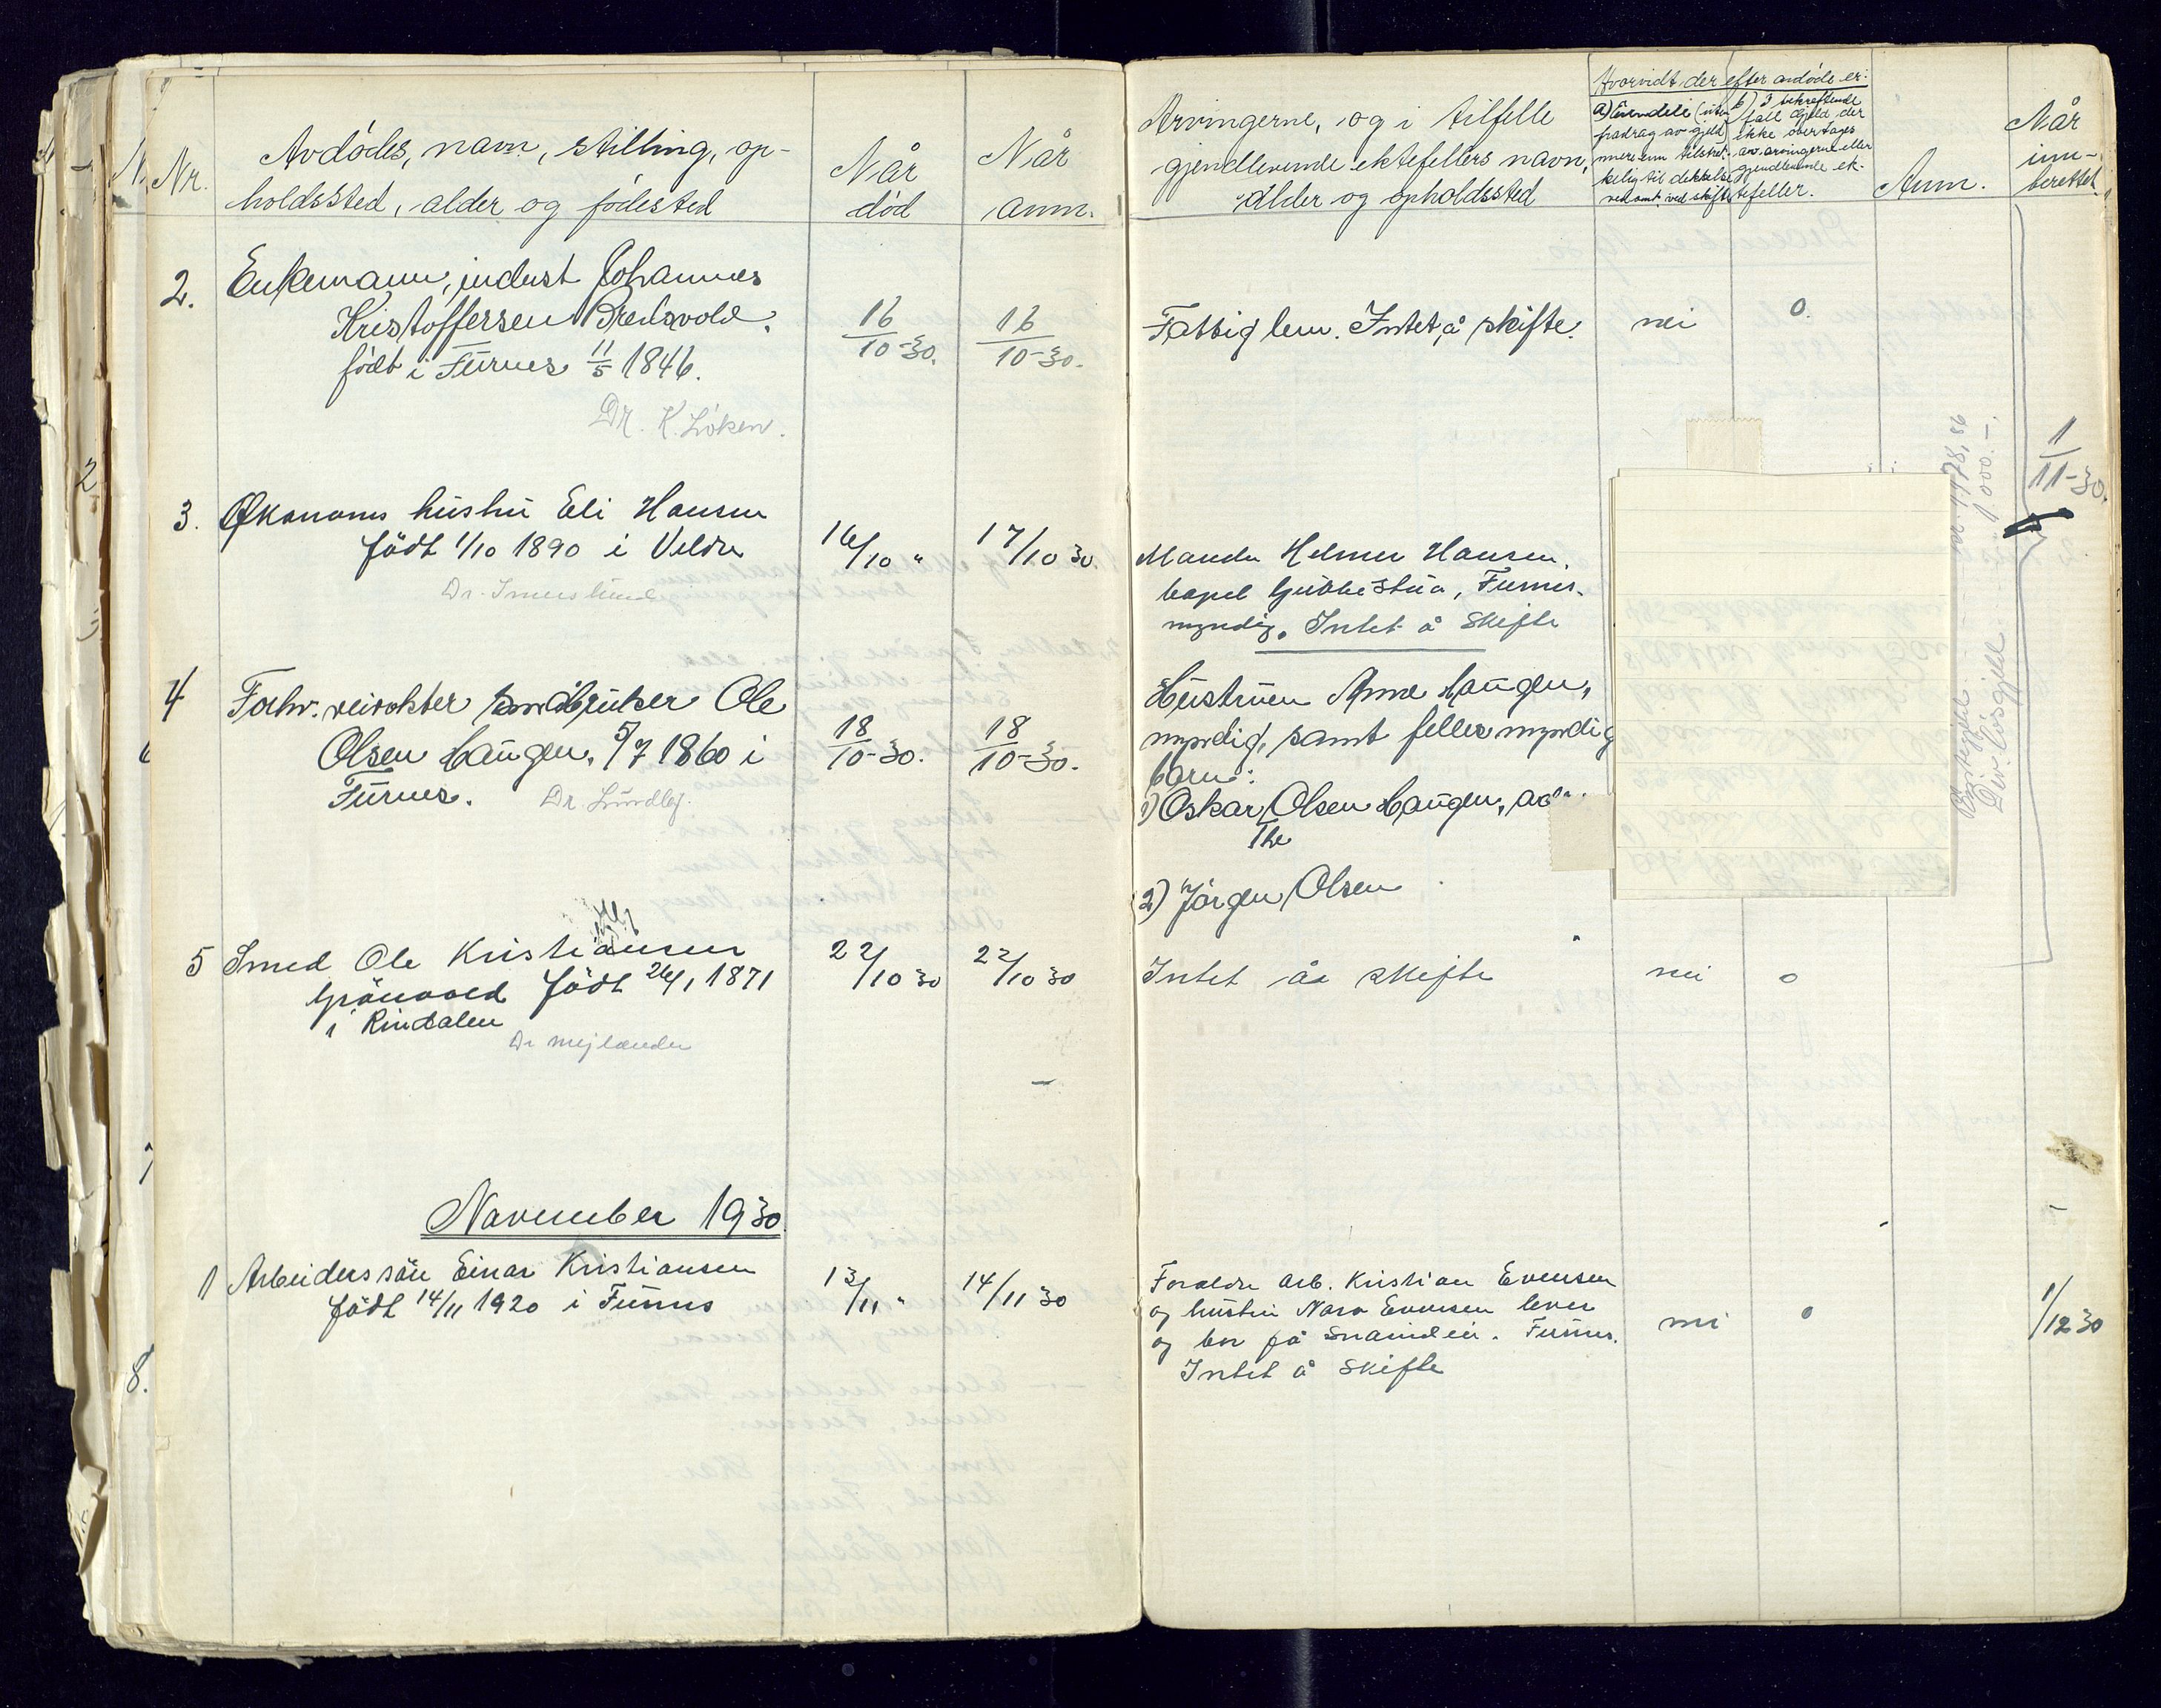 Nr.
Avdødes, navn, stilling, op-
holdssted, alder og fødested
Når
død
Når
anm.
Arvingerne, og i tilfelle
gjenlevende ektefellers navn,
alder og opholdssted
Hvorvidt der efter avdøde er:
a) Eiendele (uten
fradrag av gjeld)
mere enn tilstræk-
kelig til dekkelse
ved skifte
b) I bekreftende
fall gjeld der
ikke overtages
av arvingerne eller
gjenlevende ek-
tefeller.
Anm.
Når
inn-
berettet
2.
Enkemann, inderst Johannes
Kristoffersen Bredsvold,
født i Furnes 11/5 1846.
Dr. K. Löken.
16/10-30.
16/10-30.
Fattiglem. Intet å skifte.
nei
0.
1/11-30.
3.
Økonoms hustru Eli Hansen
født 1/10 1890 i Veldre
Dr. Imerslund
16/10 "
17/10 30.
Manden Helmer Hansen,
bopel Gubbestua, Furnes.
myndig. Intet å skifte
4
Forhv. veivokter, småbruker Ole
Olsen Haugen, 5/7 1860 i
Furnes.
Dr. Lundby.
18/10-30.
18/10-30.
Hustruen Anne Haugen,
myndig, samt felles myndig
barn:
1) Oskar Olsen Haugen,
2) Jörgen Olsen
Div. Lösgjeld
1000.-
5
Smed Ole Kristiansen
Grönvold født 26/1 1871
i Rindalen
Dr Mejlænder
22/10 30
22/10 30
Intet å skifte
nei
0
November 1930.
1
Arbeiderssön Einar Kristiansen
født 14/11 1920 i Furnes
13/11 "
14/11 30
Foreldre arb. Kristian Evensen
og hustru Nora Evensen lever
og bor på Furnes.
Intet å skifte
nei
0
1/12 30
2
8.